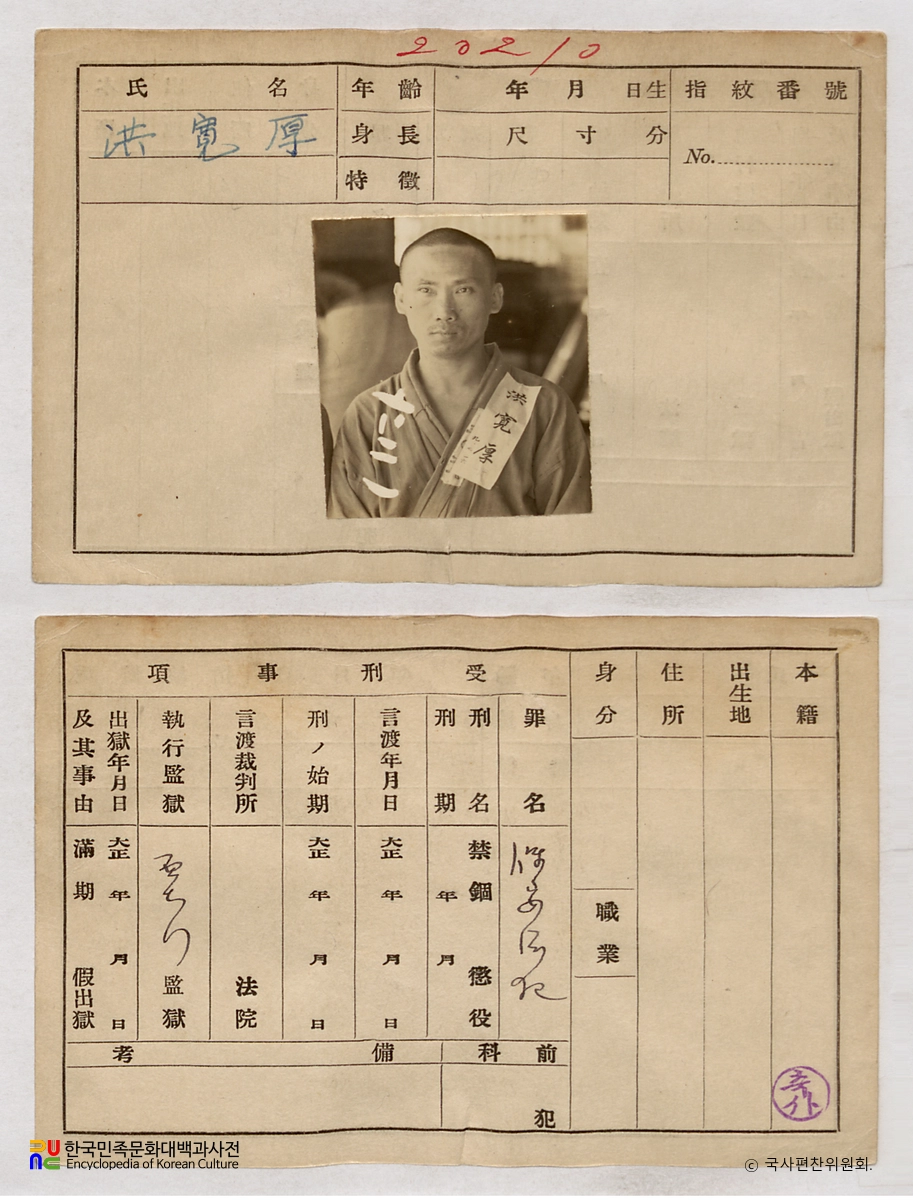 20210
氏名
洪寬厚
年齡
年月日生
指紋番號
身長
尺寸分
No.
特徵
洪寬厚
本籍
出生地
住所
身分
職業
受刑事項
罪名
保安法犯
刑名
禁錮 懲役
刑期
年月
言渡年月日
大正 年 月 日
刑ノ始期
大正 年 月 日
言渡裁判所
法院
執行監獄
監獄
出獄年月日
及其事由
大正 年 月 日
滿期 假出獄
前科
犯
備考
한국민족문화대백과사전
Encyclopedia of Korean Culture
© 국사편찬위원회.